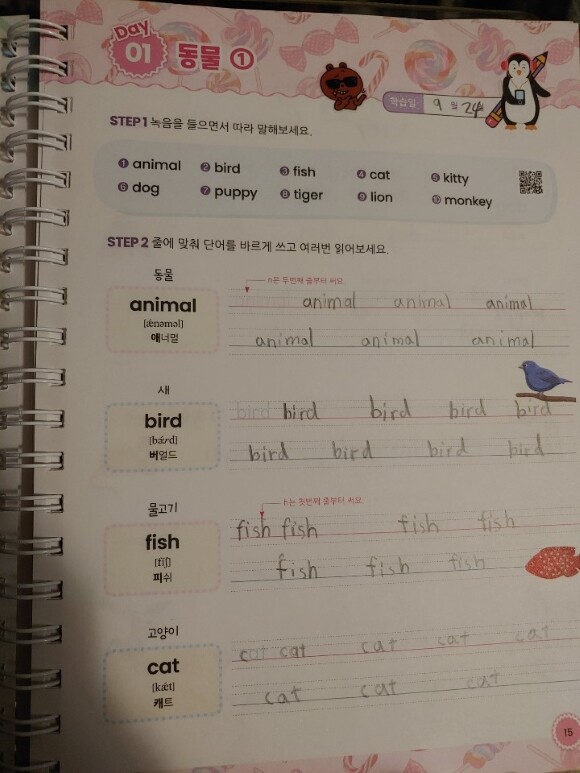 Day
01 동물 ①
학습일 9 월 24일
STEP 1 녹음을 들으면서 따라 말해보세요.
① animal ② bird ③ fish ④ cat ⑤ kitty
⑥ dog ⑦ puppy ⑧ tiger ⑨ lion ⑩ monkey
STEP 2 줄에 맞춰 단어를 바르게 쓰고 여러번 읽어보세요.
동물
n은 두번째 줄부터 써요.
animal
[ǽnəməl]
애너멀
animal animal animal
animal animal animal
새
bird
[bə́ːrd]
버얼드
bird bird bird bird bird
bird bird bird bird
물고기
h는 첫번째 줄부터 써요.
fish
[fiʃ]
피쉬
fish fish fish fish
fish fish fish
고양이
cat
[kæt]
캐트
cat cat cat cat cat
cat cat cat
15